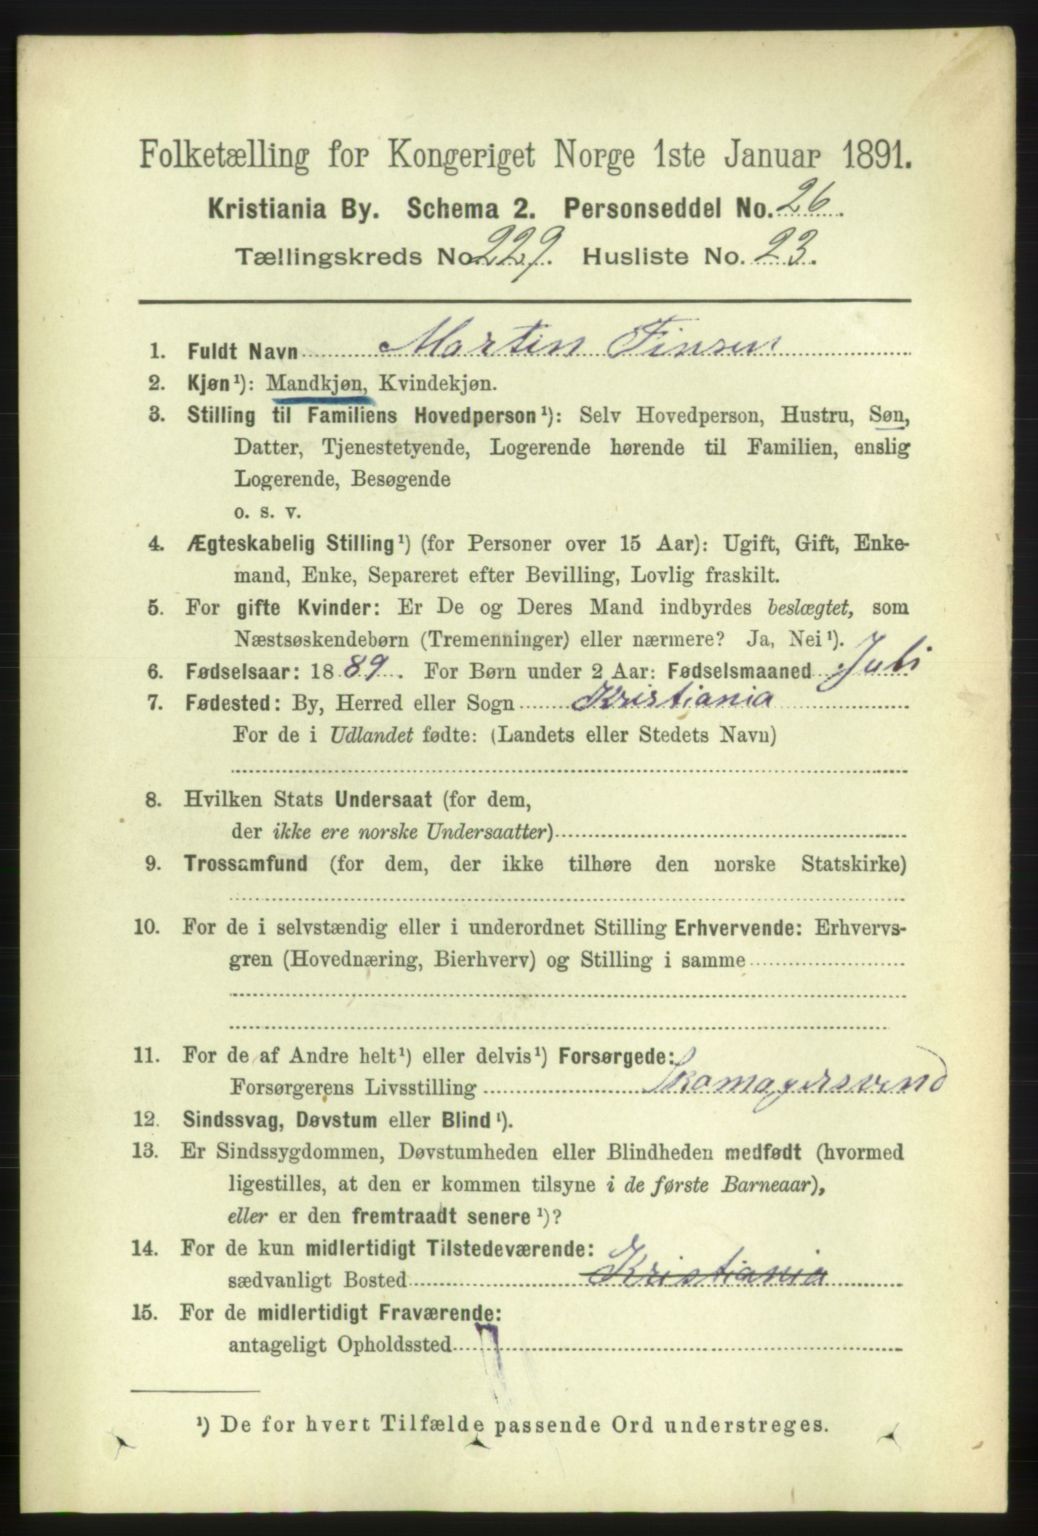 Folketælling for Kongeriget Norge 1ste Januar 1891.
Kristiania By. Schema 2. Personseddel No. 26.
Tællingskreds No. 229. Husliste No. 23.
1. Fuldt Navn Martin Finsen
2. Kjøn¹): Mandkjøn, Kvindekjøn.
3. Stilling til Familiens Hovedperson¹): Selv Hovedperson, Hustru, Søn,
Datter, Tjenestetyende, Logerende hørende til Familien, enslig
Logerende, Besøgende
o. s. v.
4. Ægteskabelig Stilling¹) (for Personer over 15 Aar): Ugift, Gift, Enke-
mand, Enke, Separeret efter Bevilling, Lovlig fraskilt.
5. For gifte Kvinder: Er De og Deres Mand indbyrdes beslægtet, som
Næstsøskendebørn (Tremenninger) eller nærmere? Ja, Nei¹).
6. Fødselsaar: 1889. For Børn under 2 Aar: Fødselsmaaned Juli
7. Fødested: By, Herred eller Sogn Kristiania
For de i Udlandet fødte: (Landets eller Stedets Navn)
8. Hvilken Stats Undersaat (for dem,
der ikke ere norske Undersaatter)
9. Trossamfund (for dem, der ikke tilhøre den norske Statskirke)
10. For de i selvstændig eller i underordnet Stilling Erhvervende: Erhvervs-
gren (Hovednæring, Bierhverv) og Stilling i samme
11. For de af Andre helt¹) eller delvis¹) Forsørgede:
Forsørgerens Livsstilling Skomagersvend
12. Sindssvag, Døvstum eller Blind¹).
13. Er Sindssygdommen, Døvstumheden eller Blindheden medfødt (hvormed
ligestilles, at den er kommen tilsyne i de første Barneaar),
eller er den fremtraadt senere¹)?
14. For de kun midlertidigt Tilstedeværende:
sædvanligt Bosted Kristiania
15. For de midlertidigt Fraværende:
antageligt Opholdssted
¹) De for hvert Tilfælde passende Ord understreges.